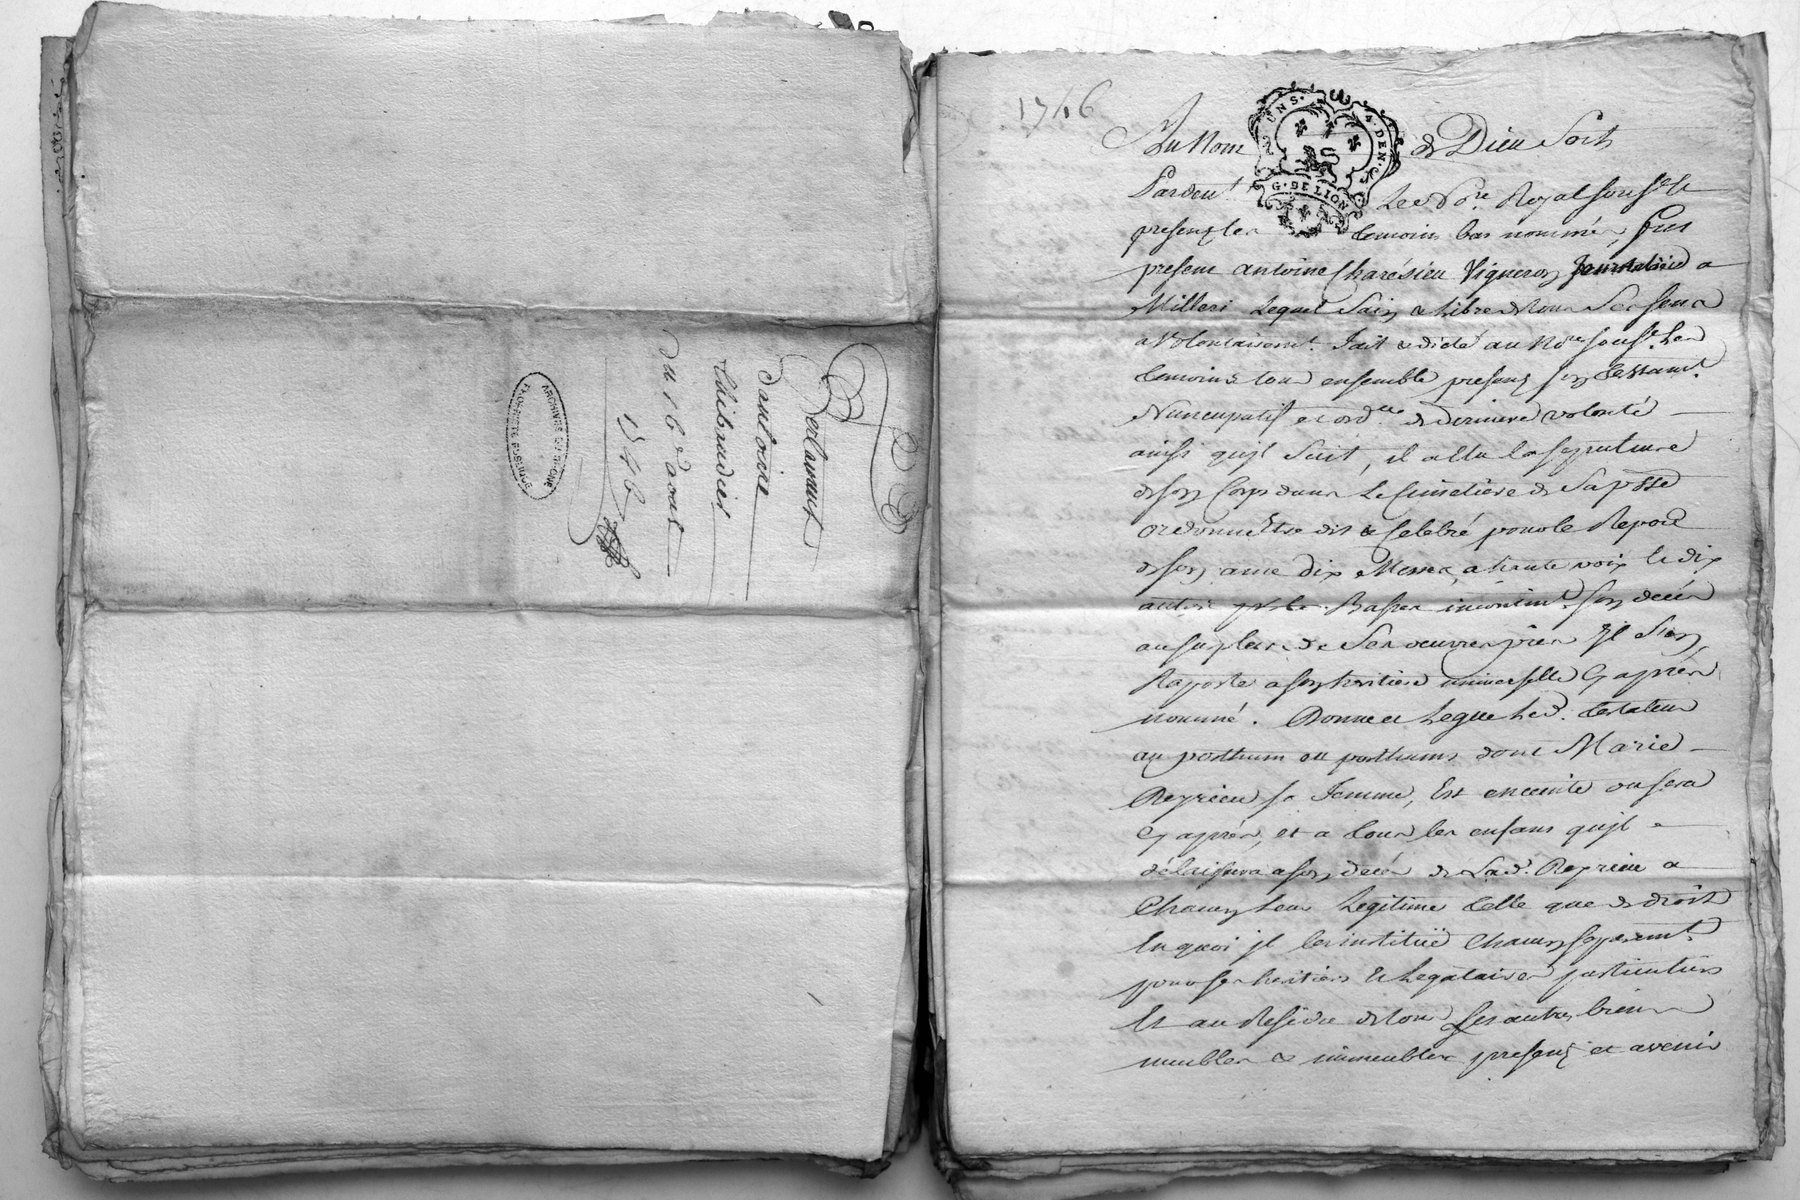 Testament
d'antoine
Thibaudier
du 16e aoust
1746
ARCHIVES DU RHONE
1746
Au Nom de Dieu Soit
Pardevt Le No.re Royal souss.é &
presents les temoins bas nommés, fut
present antoine Charésieu Vigneron a
Milleri Lequel Sain & Libre de tous Ses sens a
a Volontairemt. fait & dicté au No.re souss.é Les
temoins tous ensemble presens son testamt.
Nuncupatif et ord.ce de derniere volonté
ainsi quil Suit, il a élu la sepulture
de son Corps dans Le Cimetière de Sa p.sse
ordonne Etre dit & Celebré pour le Repos
de son ame Dix Messes, a haute voix le dix
autres Basses incontint. son décés
au surplus de Ses oeuvres pies Il S'en
Raporte a son heritiere universelle Cy aprés
nommé. Donne et Legue Led. testateur
au posthum ou posthums dont Marie
Reyrieu sa femme, Est enceinte ou sera
Cy aprés, et a tous les enfans quil
délaissera a son décés de Lad. Reyrieu a
Chacun Leur Legitime telle que de droit
En quoi il les instituë Chacun separemt.
pour ses heritiers & Legataires particuliers
Et au Residu de tous Ses autres biens
meubles & immeubles presens et avenir
UNS. 4. DEN.
G. DE LION